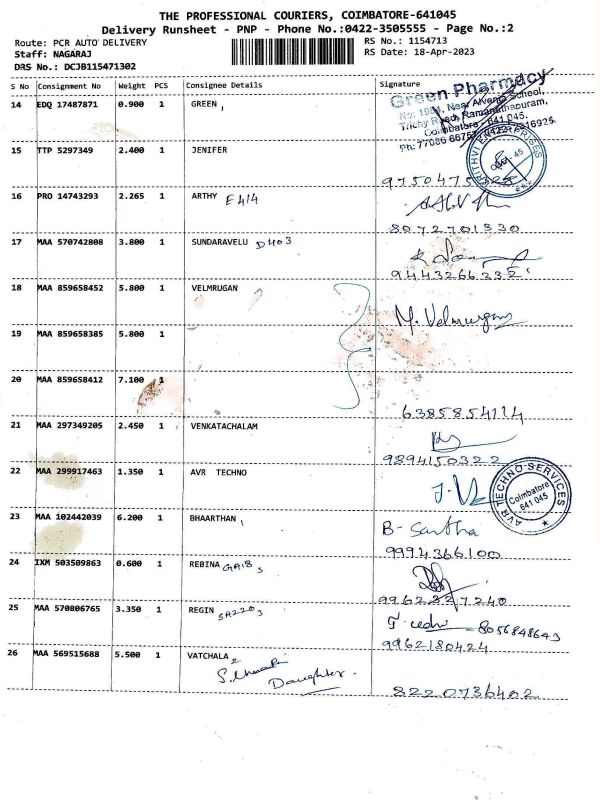 THE PROFESSIONAL COURIERS, COIMBATORE-641045
Delivery Runsheet - PNP - Phone No.:0422-3505555 - Page No.:2
Route: PCR AUTO DELIVERY
RS No.: 1154713
Staff: NAGARAJ
RS Date: 18-Apr-2023
DRS No.: DCJB115471302
S No Consignment No Weight PCS Consignee Details Signature
14 EDQ 17487871 0.900 1 GREEN,
Green Pharmacy
Trichy Road, Ramanathapuram,
Coimbatore - 641 045.
15 TTP 5297349 2.400 1 JENIFER
KRITHVI ENTERPRISES
16 PRO 14743293 2.265 1 ARTHY E414
8072701330
17 MAA 570742808 3.800 1 SUNDARAVELU D403
9443266332
18 MAA 859658452 5.800 1 VELMRUGAN M. Velmurugan
19 MAA 859658385 5.800 1
20 MAA 859658412 7.100 1
6385854114
21 MAA 297349205 2.450 1 VENKATACHALAM
9894150322
22 MAA 299917463 1.350 1 AVR TECHNO
AVR TECHNO-SERVICES
Coimbatore
641 045
23 MAA 102442039 6.200 1 BHAARTHAN, B- Santha
9994366100
24 IXM 503509863 0.600 1 REBINA GA18,
9962327240
25 MAA 570806765 3.350 1 REGIN SA220, 8056848643
9962180424
26 MAA 569515688 5.500 1 VATCHALA 2
Daughter.
8220736402